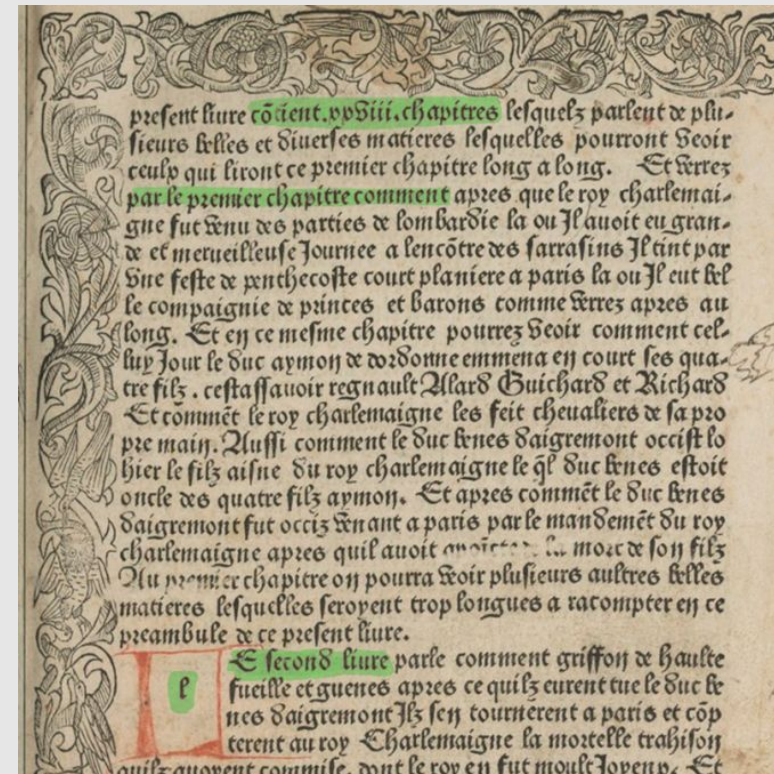 present livre cõtient.xxviii.chapitres lesquelz parlent de plu-
sieurs belles et diuerses matieres lesquelles pourront veoir
ceulx qui liront ce premier chapitre long a long. Et verrez
par le premier chapitre comment apres que le roy charlemai-
gne fut venu des parties de lombardie la ou Il auoit eu gran-
de et merueilleuse Journee a lencõtre des sarrasins Il tint par
vne feste de penthecoste court planiere a paris la ou Il eut bel
le compaignie de princes et barons comme verrez apres au
long. Et en ce mesme chapitre pourrez veoir comment cel-
luy Jour le duc aymon de dordonne emmena en court ses qua-
tre filz. cestassauoir regnault Alard Guichard et Richard
Et commẽt le roy charlemaigne les feit cheualiers de sa pro
pre main. Aussi comment le duc benes daigremont occist lo
hier le filz aisne du roy charlemaigne le q̃l duc benes estoit
oncle des quatre filz aymon. Et apres commẽt le duc benes
daigremont fut occiz venant a paris par le mandemẽt du roy
charlemaigne apres quil auoit la mort de son filz
Au premier chapitre on pourra veoir plusieurs aultres belles
matieres lesquelles seroyent trop longues a racompter en ce
preambule de ce present liure.
l
E second liure parle comment griffon de haulte
fueille et guenes apres ce quilz eurent tue le duc be
nes daigremont Ilz sen tournerent a paris et cõp
terent au roy Charlemaigne la mortelle trahison
quilz auoyent commise. dont le roy en fut moult Joyeux. Et